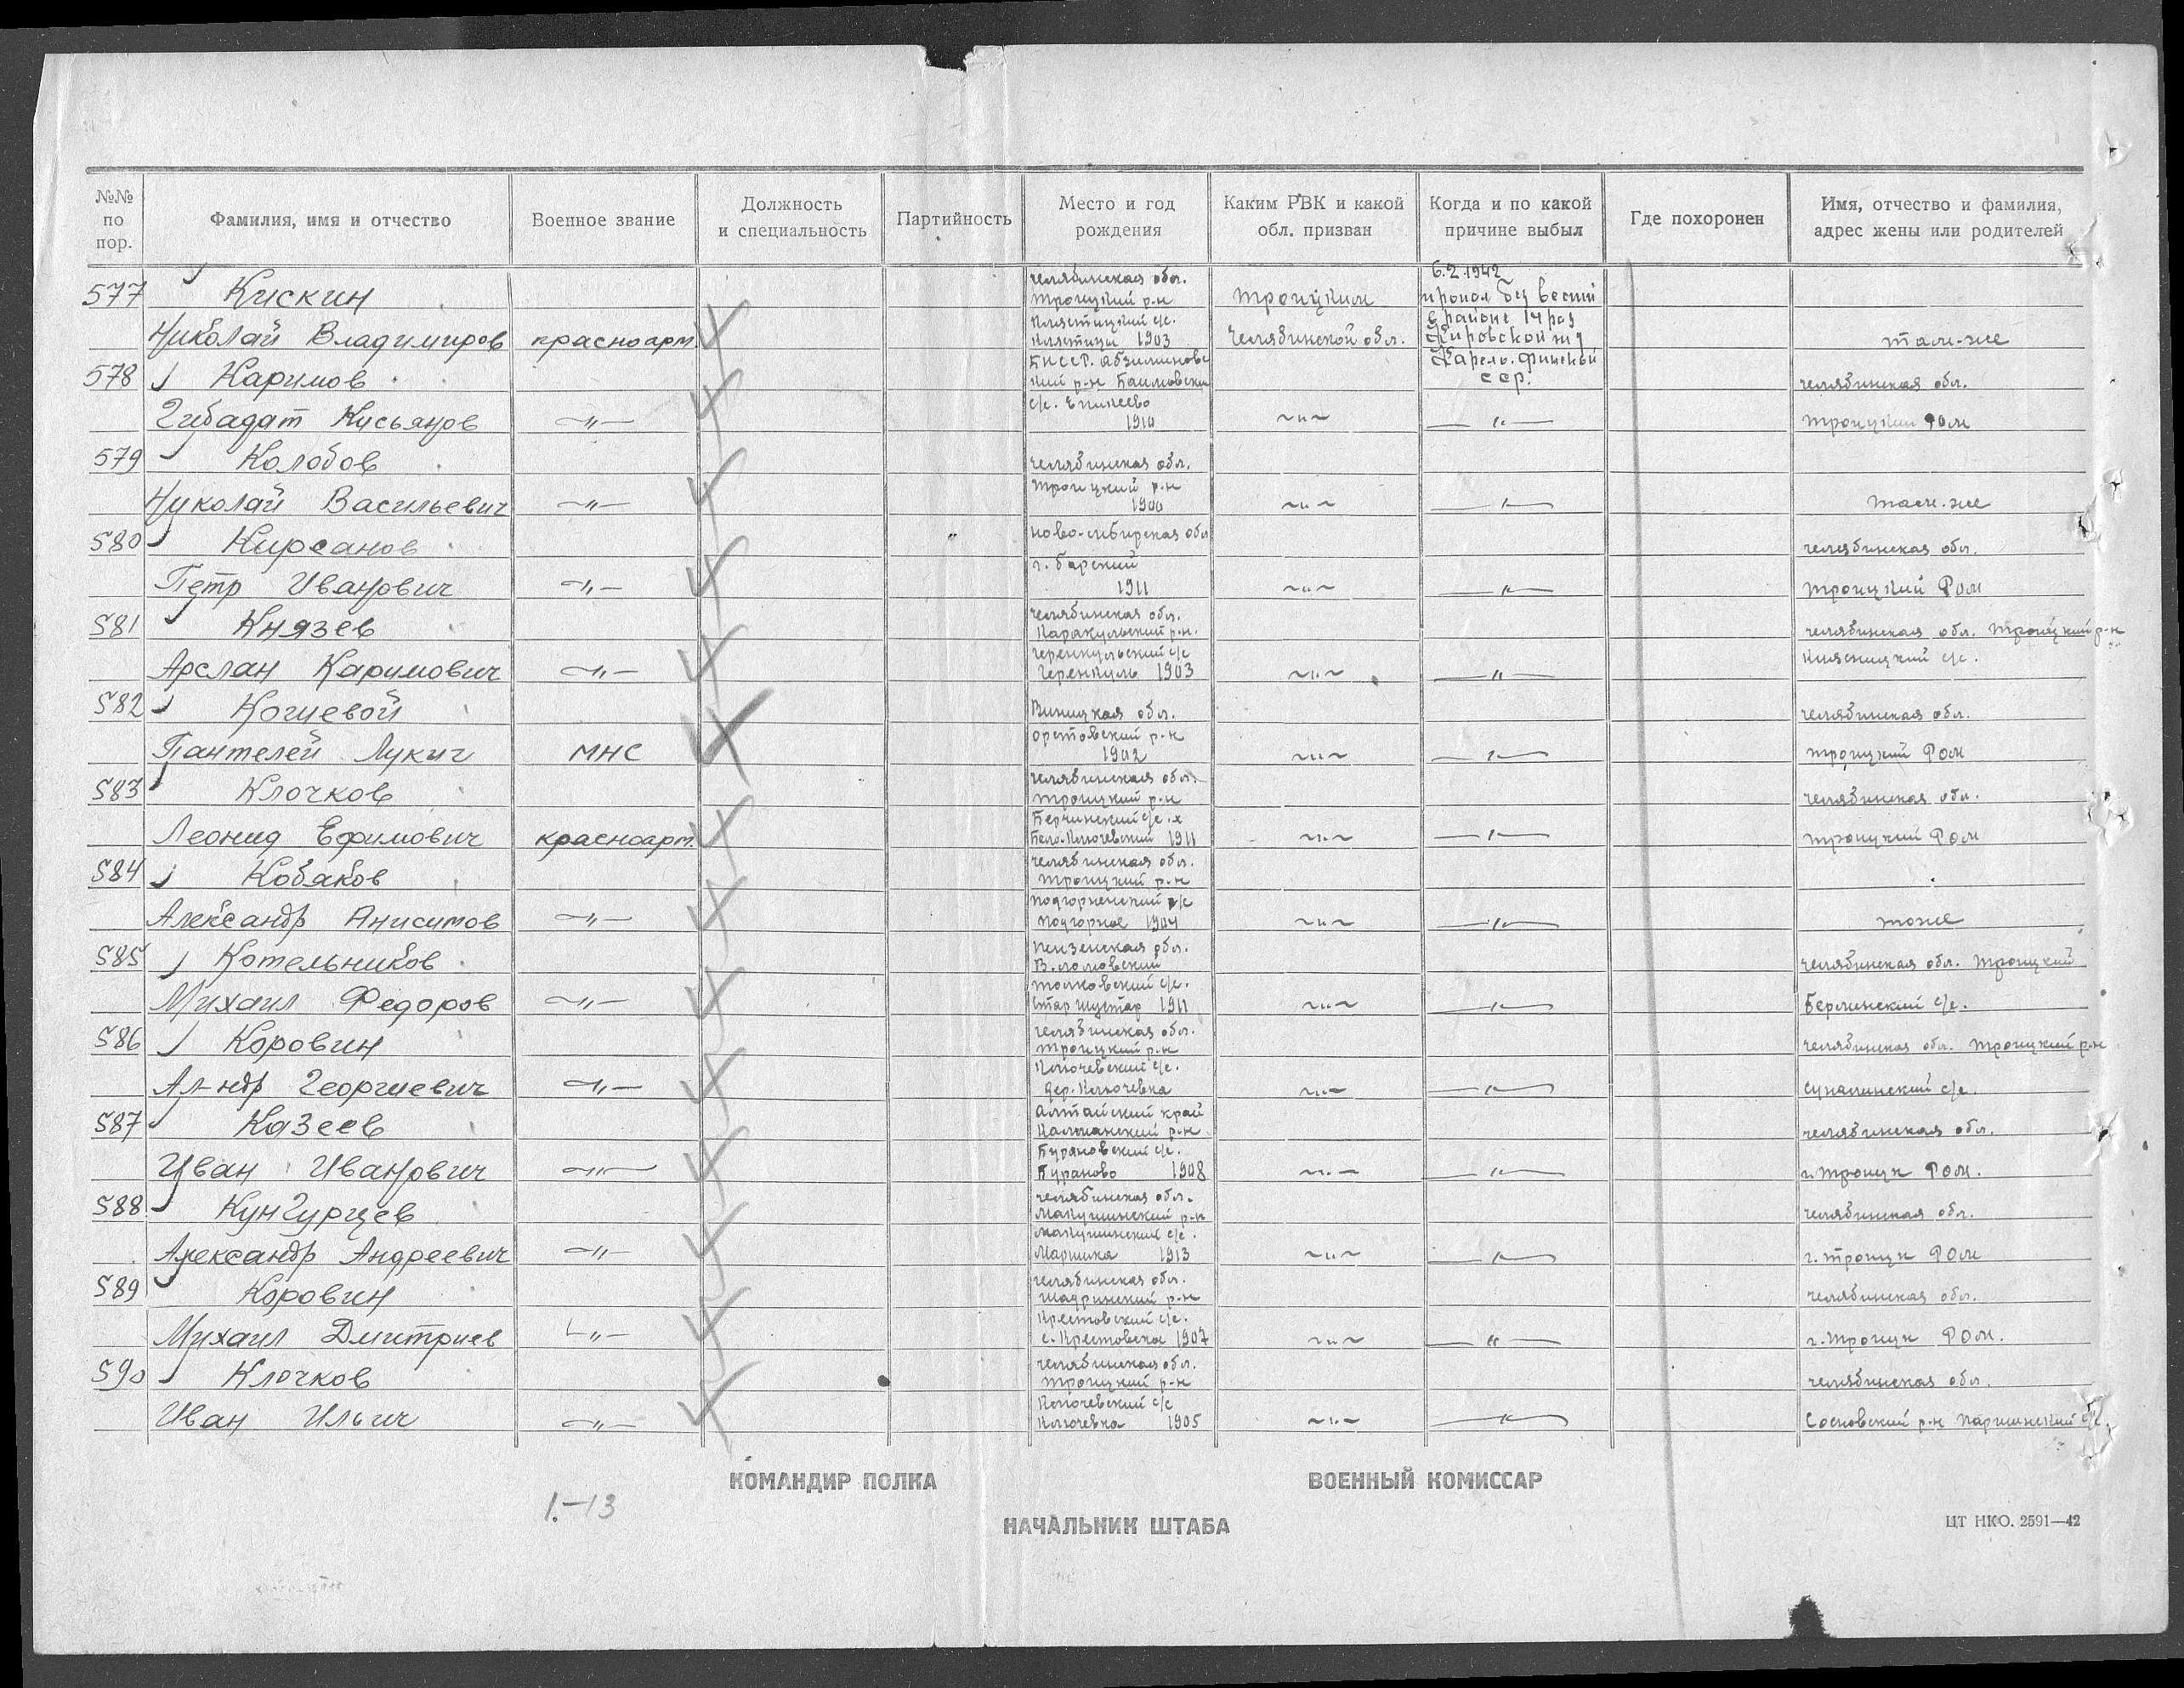 №№ по пор.
Фамилия, имя и отчество
Военное звание
Должность и специальность
Партийность
Место и год рождения
Каким РВК и какой обл. призван
Когда и по какой причине выбыл
Где похоронен
Имя, отчество и фамилия, адрес жены или родителей
577 Кискин
Николай Владимиров красноарм.
Челябинская обл.
Троицкий р-н
Клястицкий с/с.
Клястицы 1903
Троицким
Челябинской обл.
6.2.1942
пропал без вести
в районе 14 раз
Кировской ж д
Карело-Финской
сср.
там-же
578 Каримов
Гибадат Кусьянов —„—
БАССР. Абзелиловс
кий р-н Баимовски
с/с.
1910
~„~
—„—
Челябинская обл.
Троицкий РОМ
579 Колобов
Николай Васильевич —„—
Челябинская обл.
Троицкий р-н
1900
~„~
—„—
там-же
580 Кирсанов
Петр Иванович —„—
„
Ново-сибирская обл
г.
1911
~„~
—„—
Челябинская обл.
Троицкий РОМ
581 Князев
Арслан Каримович —„—
Челябинская обл.
Каракульский р-н.
Теренкульский с/с
Теренкуль 1903
~„~
—„—
Челябинская обл. Троицкий р-н
с/с.
582 Кошевой
Пантелей Лукич МНС
Виницкая обл.
р-н
1902
~„~
—„—
Челябинская обл.
Троицкий РОМ
583 Клочков
Леонид Ефимович красноарм.
Челябинская обл.
Троицкий р-н
с/с.
1911
~„~
—„—
Челябинская обл.
Троицкий РОМ
584 Кобяков
Александр Анисимов —„—
Челябинская обл.
Троицкий р-н
Подгорненский с/с
Подгорное 1904
~„~
—„—
тоже
585 Котельников
Михаил Федоров —„—
Пензенская обл.
В.ломовский
с/с.
1911
~„~
—„—
Челябинская обл. Троицкий
Берлинский с/с.
586 Коровин
Ал-ндр Георгиевич —„—
Челябинская обл.
Троицкий р-н
Ключевский с/с.
дер. Ключевка
~„~
—„—
Челябинская обл. Троицкий р-н
с/с.
587 Казеев
Иван Иванович —„—
Алтайский край
Калманский р-н
Бурановский с/с.
Бураново 1908
~„~
—„—
Челябинская обл.
г. Троицк РОМ.
588 Кунгурцев
Александр Андреевич —„—
Челябинская обл.
Макушинский р-н
Макушинский с/с.
1913
~„~
—„—
Челябинская обл.
г. Троицк РОМ
589 Коровин
Михаил Дмитриев —„—
Челябинская обл.
Шадринский р-н
Крестовский с/с.
с. Крестовское 1907
~„~
—„—
Челябинская обл.
г. Троицк РОМ.
590 Клочков
Иван Ильич —„—
Челябинская обл.
Троицкий р-н
Ключевский с/с
Ключевка 1905
~„~
—„—
Челябинская обл.
Сосновский р-н с/с.
КОМАНДИР ПОЛКА
ВОЕННЫЙ КОМИССАР
1.-13
НАЧАЛЬНИК ШТАБА
ЦТ НКО. 2591—42